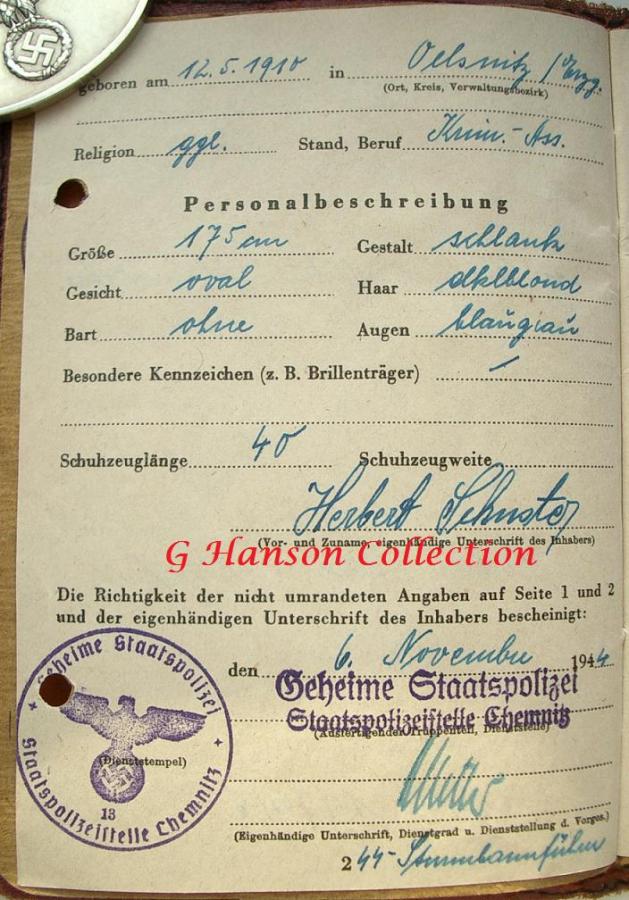 geboren am 12.5.1910 in Oelsnitz /Erzg.
(Ort, Kreis, Verwaltungsbezirk)
Religion ggl. Stand, Beruf Krim.-Ass.
Personalbeschreibung
Größe 175 cm Gestalt schlank
Gesicht oval Haar dklblond
Bart ohne Augen blaugrau
Besondere Kennzeichen (z. B. Brillenträger) —
Schuhzeuglänge 40 Schuhzeugweite
Herbert Schuster
(Vor- und Zuname, eigenhändige Unterschrift des Inhabers)
G Hanson Collection
Die Richtigkeit der nicht umrandeten Angaben auf Seite 1 und 2
und der eigenhändigen Unterschrift des Inhabers bescheinigt:
den 6. November 1944
Geheime Staatspolizei
Staatspolizeistelle Chemnitz
(Ausfertigender Truppenteil, Dienststelle)
Geheime Staatspolizei
Staatspolizeistelle Chemnitz
13
(Dienststempel)
(Eigenhändige Unterschrift, Dienstgrad u. Dienststellung d. Vorges.)
2 44-Sturmbannführer